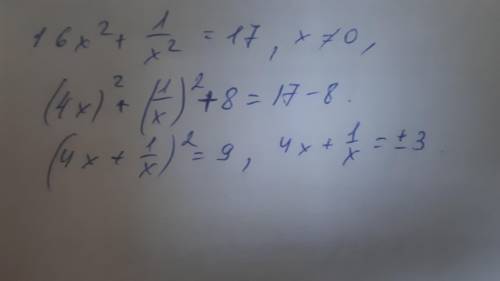 16x² + 1/x² = 17, x ≠ 0,
(4x)² + (1/x)² - 8 = 17 - 8.
(4x + 1/x)² = 9, 4x + 1/x = ± 3.